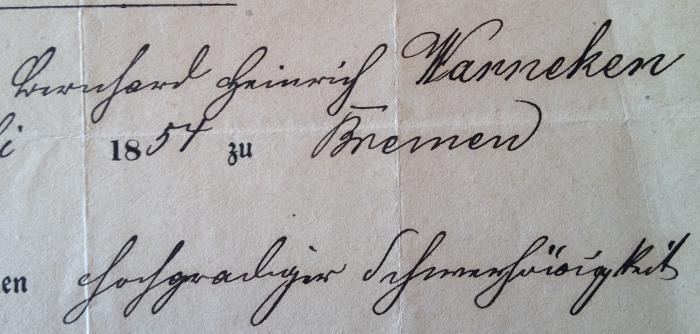 Bernhard Heinrich Wanneken
li 1854 zu Bremen
en hochgradiger Schwerhörigkeit